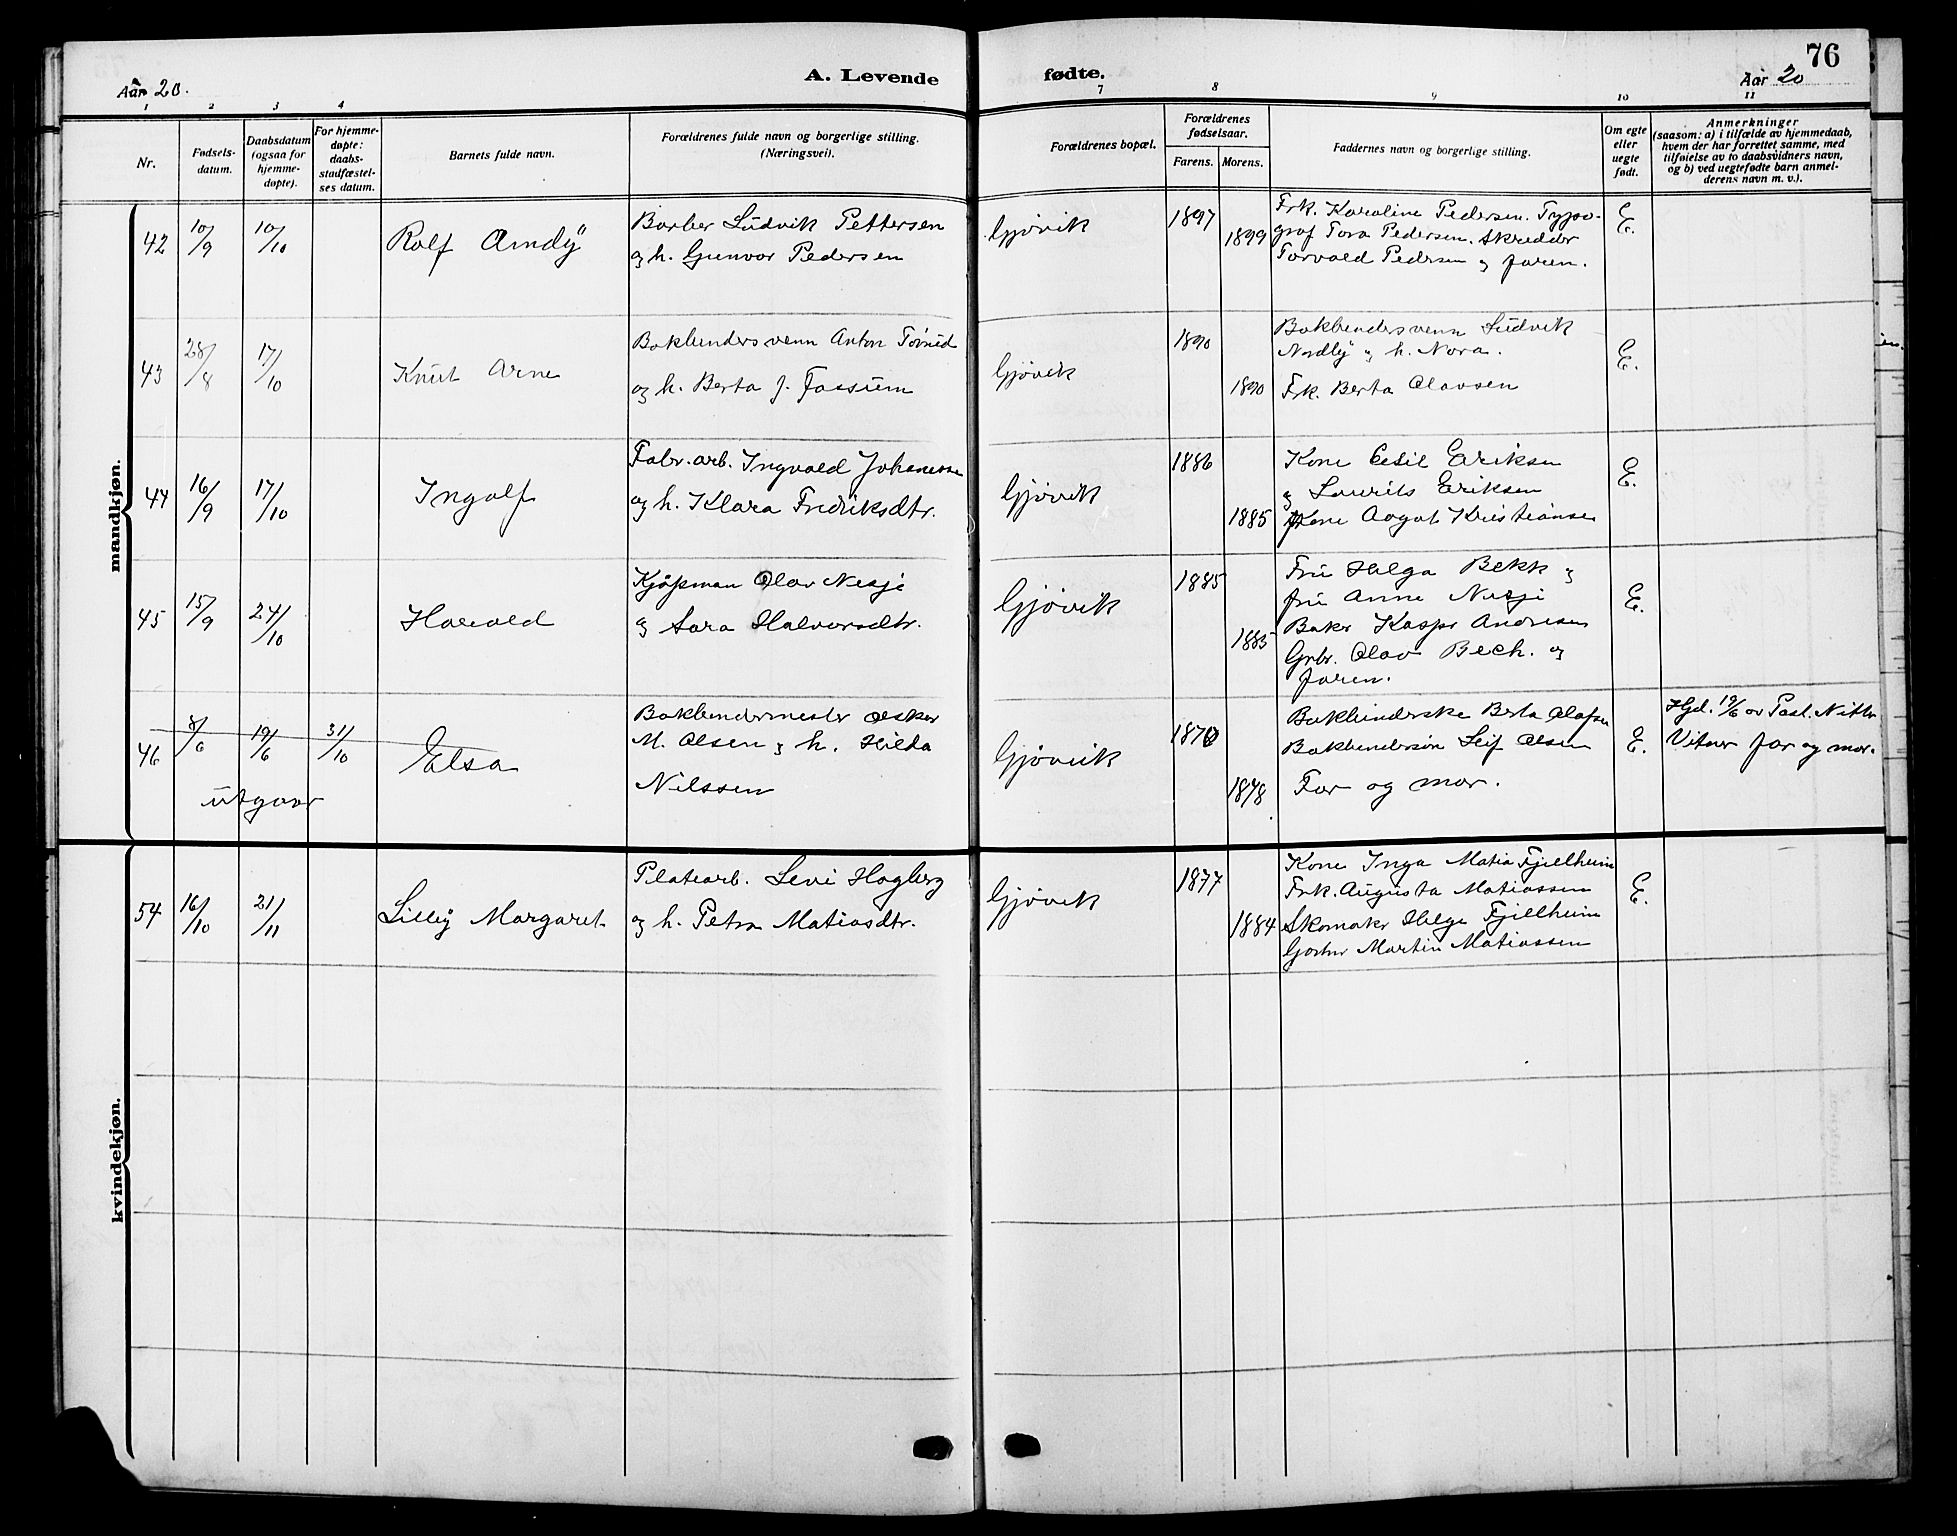 76
Aar 20.
A. Levende fødte.
Aar 20
1 2 3 4 7 8 9 10 11
Nr.
Fødsels-
datum.
Daabsdatum
(ogsaa for
hjemme-
døpte).
For hjemme-
døpte:
daabs-
stadfæstel-
ses datum.
Barnets fulde navn.
Forældrenes fulde navn og borgerlige stilling.
(Næringsvei).
Forældrenes bopæl.
Forældrenes
fødselsaar.
Farens. Morens.
Faddernes navn og borgerlige stilling.
Om egte
eller
uegte
født.
Anmerkninger
(saasom: a) i tilfælde av hjemmedaab,
hvem der har forrettet samme, med
tilføielse av to daabsvidners navn,
og b) ved uegtefødte barn anmel-
derens navn m. v.).
mandkjøn.
42 10/9 10/10 Rolf Amdÿ
Barber Ludvik Pettersen
og h. Gunvor Pedersen
Gjøvik 1897 1899
Frk. Karoline Pedersen. Typo-
graf Tora Pedersen. Skredder
Torvald Pedersen og faren.
E.
43 28/8 17/10 Knut Arne
Bokbindersvenn Anton
og h. Berta J. Fossum
Gjøvik 1890 1890
Bokbindersvenn Ludvik
Nordlÿ og h. Nora.
Frk. Berta Olavsen
E.
44 16/9 17/10 Ingolf
Fabr. arb. Ingvald Johanessen
og h. Klara Fredriksdtr.
Gjøvik 1886 1885
Kone Eriksen
og Laurits Eriksen
Kone Kristiansen
E.
45 15/9 24/10 Harald
Kjøpman Olav Nesje
og Sara Halvorsdtr.
Gjøvik 1885 1885
Fru Helga Bekk og
fru Anne Nesje
Baker Kaspr Andresen
Grbr. Olav Bech. og
faren.
E.
46 8/6 19/6 31/10 Elsa
utgaar
Bokbindermester Oskar
M. Olsen og h. Hilda
Nilssen
Gjøvik 1870 1878
Bokbinderske Berta Olafsen
Bokbindersøn Leif Olsen
Far og mor.
E.
Hjd. 19/6 av Past.
Vitner far og mor.
kvindekjøn.
54 16/10 21/11 Lillÿ Margaret
Platearb. Levi Hagberg
og h. Petra Matiasdtr.
Gjøvik 1877 1884
Kone Inga Matia Fjellheim
Frk. Augusta Matiassen
Skomaker Helge Fjellheim
Martin Matiassen
E.